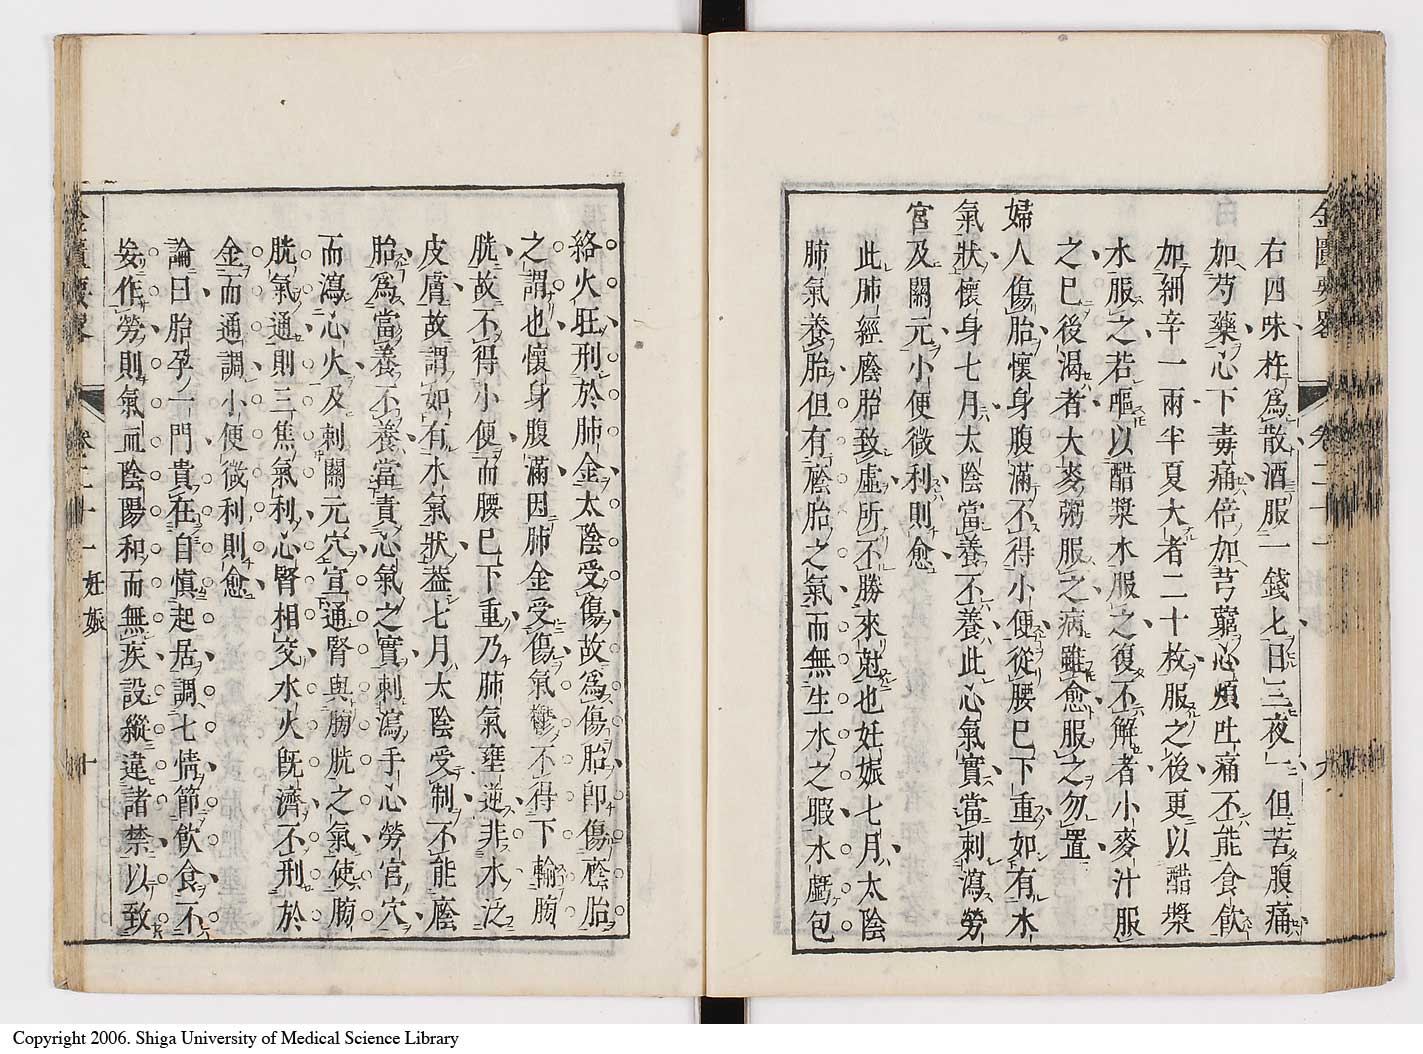 右四味杵爲散酒服一錢匕日三夜一但苦腹痛
加芍藥心下毒痛倍加芎藭心煩吐痛不能食飲
加細辛一兩半夏大者二十枚服之後更以醋漿
水服之若嘔以醋漿水服之復不解者小麥汁服
之已後渴者大麥粥服之病雖愈服之勿置
婦人傷胎懷身腹滿不得小便從腰已下重如有水
氣狀懷身七月太陰當養不養此心氣實當刺瀉勞
宮及關元小便微利則愈
此肺經廕胎致虛所不勝來尅也妊娠七月太陰
肺氣養胎但有廕胎之氣而無生水之暇水虧包
絡火旺刑於肺金太陰受傷故爲傷胎卽傷廕胎
之謂也懷身腹滿因肺金受傷氣鬱不得下輸膀
胱故不得小便而腰已下重乃肺氣壅逆非水泛
皮膚故謂如有水氣狀葢七月太陰受制不能廕
胎爲當養不養當責心氣之實刺瀉手心勞宮穴
而瀉心火及刺關元穴宣通腎與膀胱之氣使膀
胱氣通則三焦氣利心腎相交水火旣濟不刑於
金而通調小便微利則愈
論曰胎孕一門貴在自慎起居調七情節飲食不
妄作勞則氣血陰陽和而無疾設縱違諸禁以致
金匱要畧
卷二十一
妊娠
十
金匱要畧
卷二十一
九
Copyright 2006. Shiga University of Medical Science Library